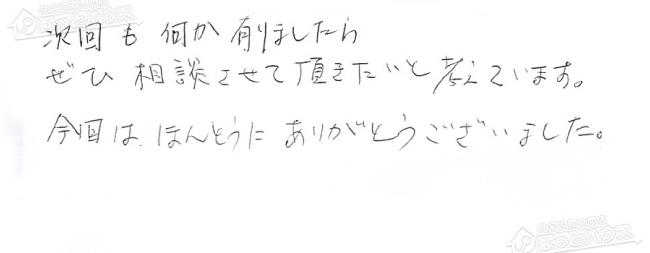 次回も何か有りましたら
ぜひ相談させて頂きたいと考えています。
今回は、ほんとうにありがとうございました。